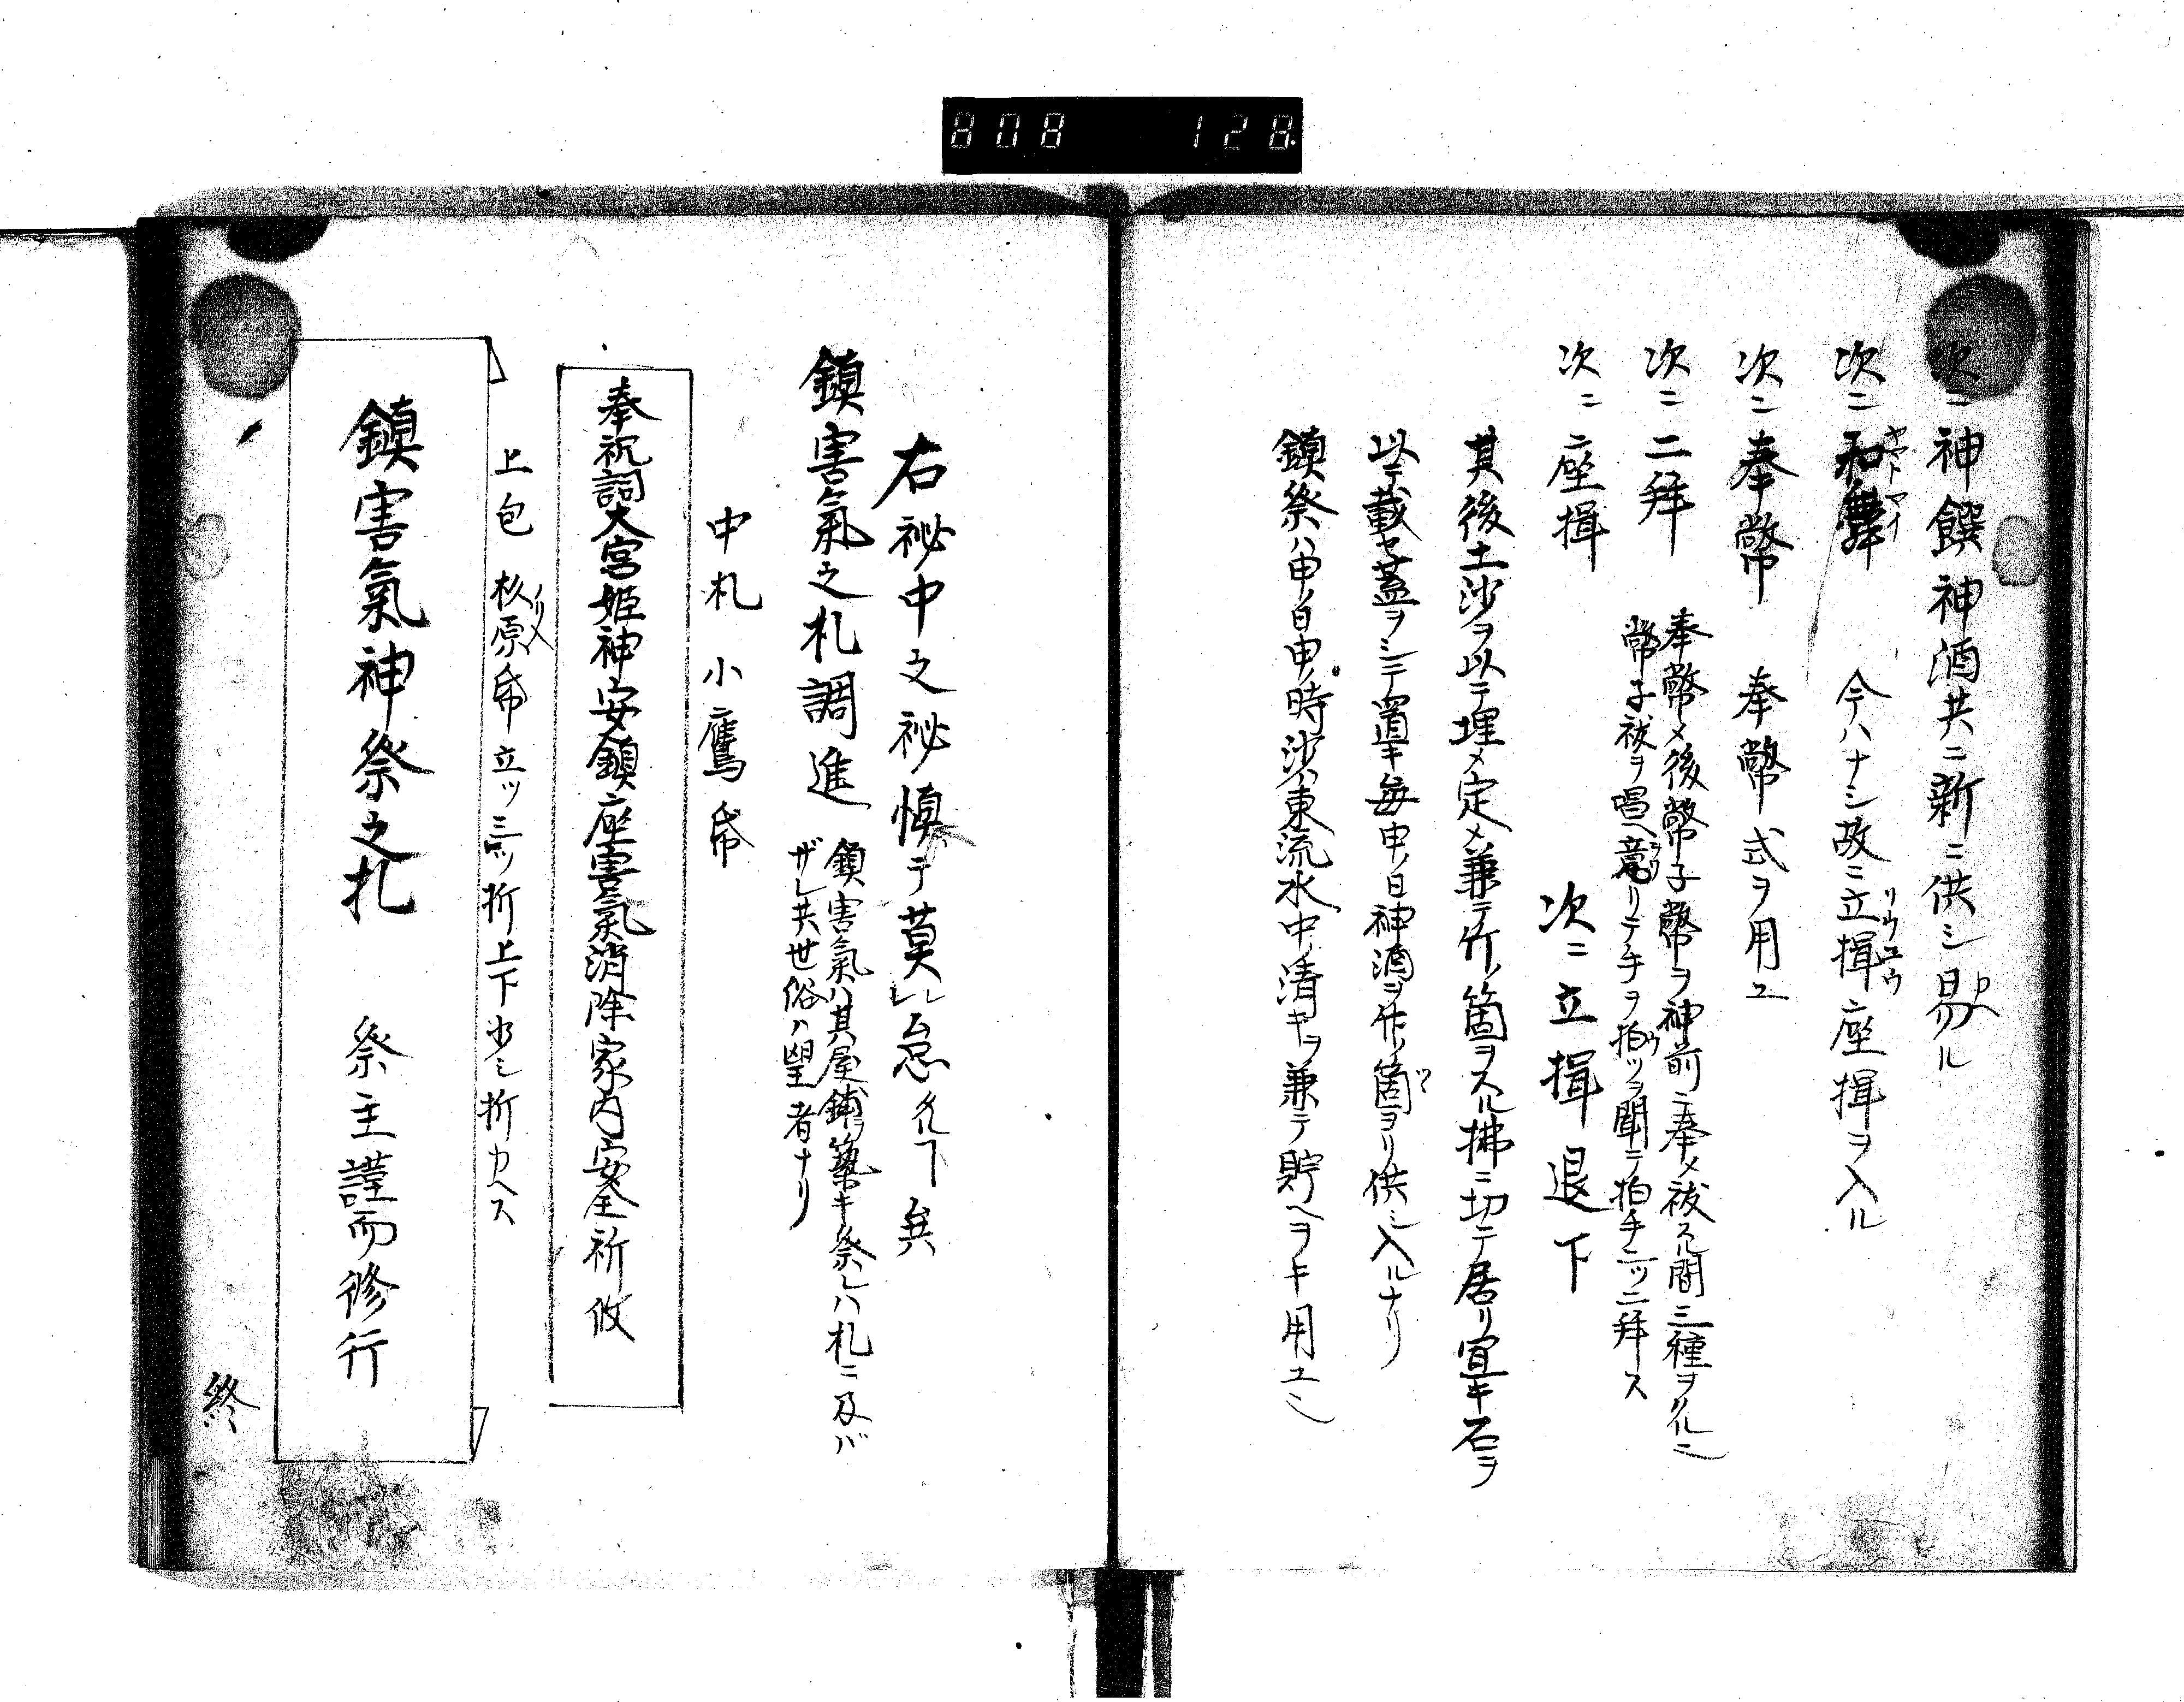 808 128
次ニ神饌神酒共ニ新ニ供シ易ル
次ニ和舞 今ハナシ故ニ立揖座揖ヲ入ル
ヤマトマイ
リウユウ
次ニ奉幣 奉幣式ヲ用ユ
次ニ二拜
奉幣メ後幣子幣ヲ神前ニ奉メ祓スル間三種ヲ
幣子祓ヲ唱ヘ竟リテ手ヲ拍ツヲ聞テ拍手二ツ二拜ス
次ニ座揖 次ニ立揖退下
其後土沙ヲ以テ埋メ定メ兼テ竹ノ箇ヲスル拂ニ切テ居リ置キ石ヲ
以テ載セ蓋ヲシテ置キ毎申ノ日神酒ヲ作ノ箇ヨリ供シ入ルナリ
鎮祭ハ申ノ日申ノ時沙ハ東流水中ノ清キヲ兼テ貯ヘヲキ用ユ
右祕中之祕慎テ莫レ怠
鎮害氣之札調進
鎮害氣ハ其屋鋪ヲ築キ祭レハ札ニ及バ
ザレ共世俗ハ望者ナリ
中札 小鷹帋
奉祝詞大宮姫神安鎮座害氣消除家内安全祈攸
上包 杉原帋立ツ三ツ折上下少シ折カヘス
鎮害氣神祭之札 祭主謹而修行
終